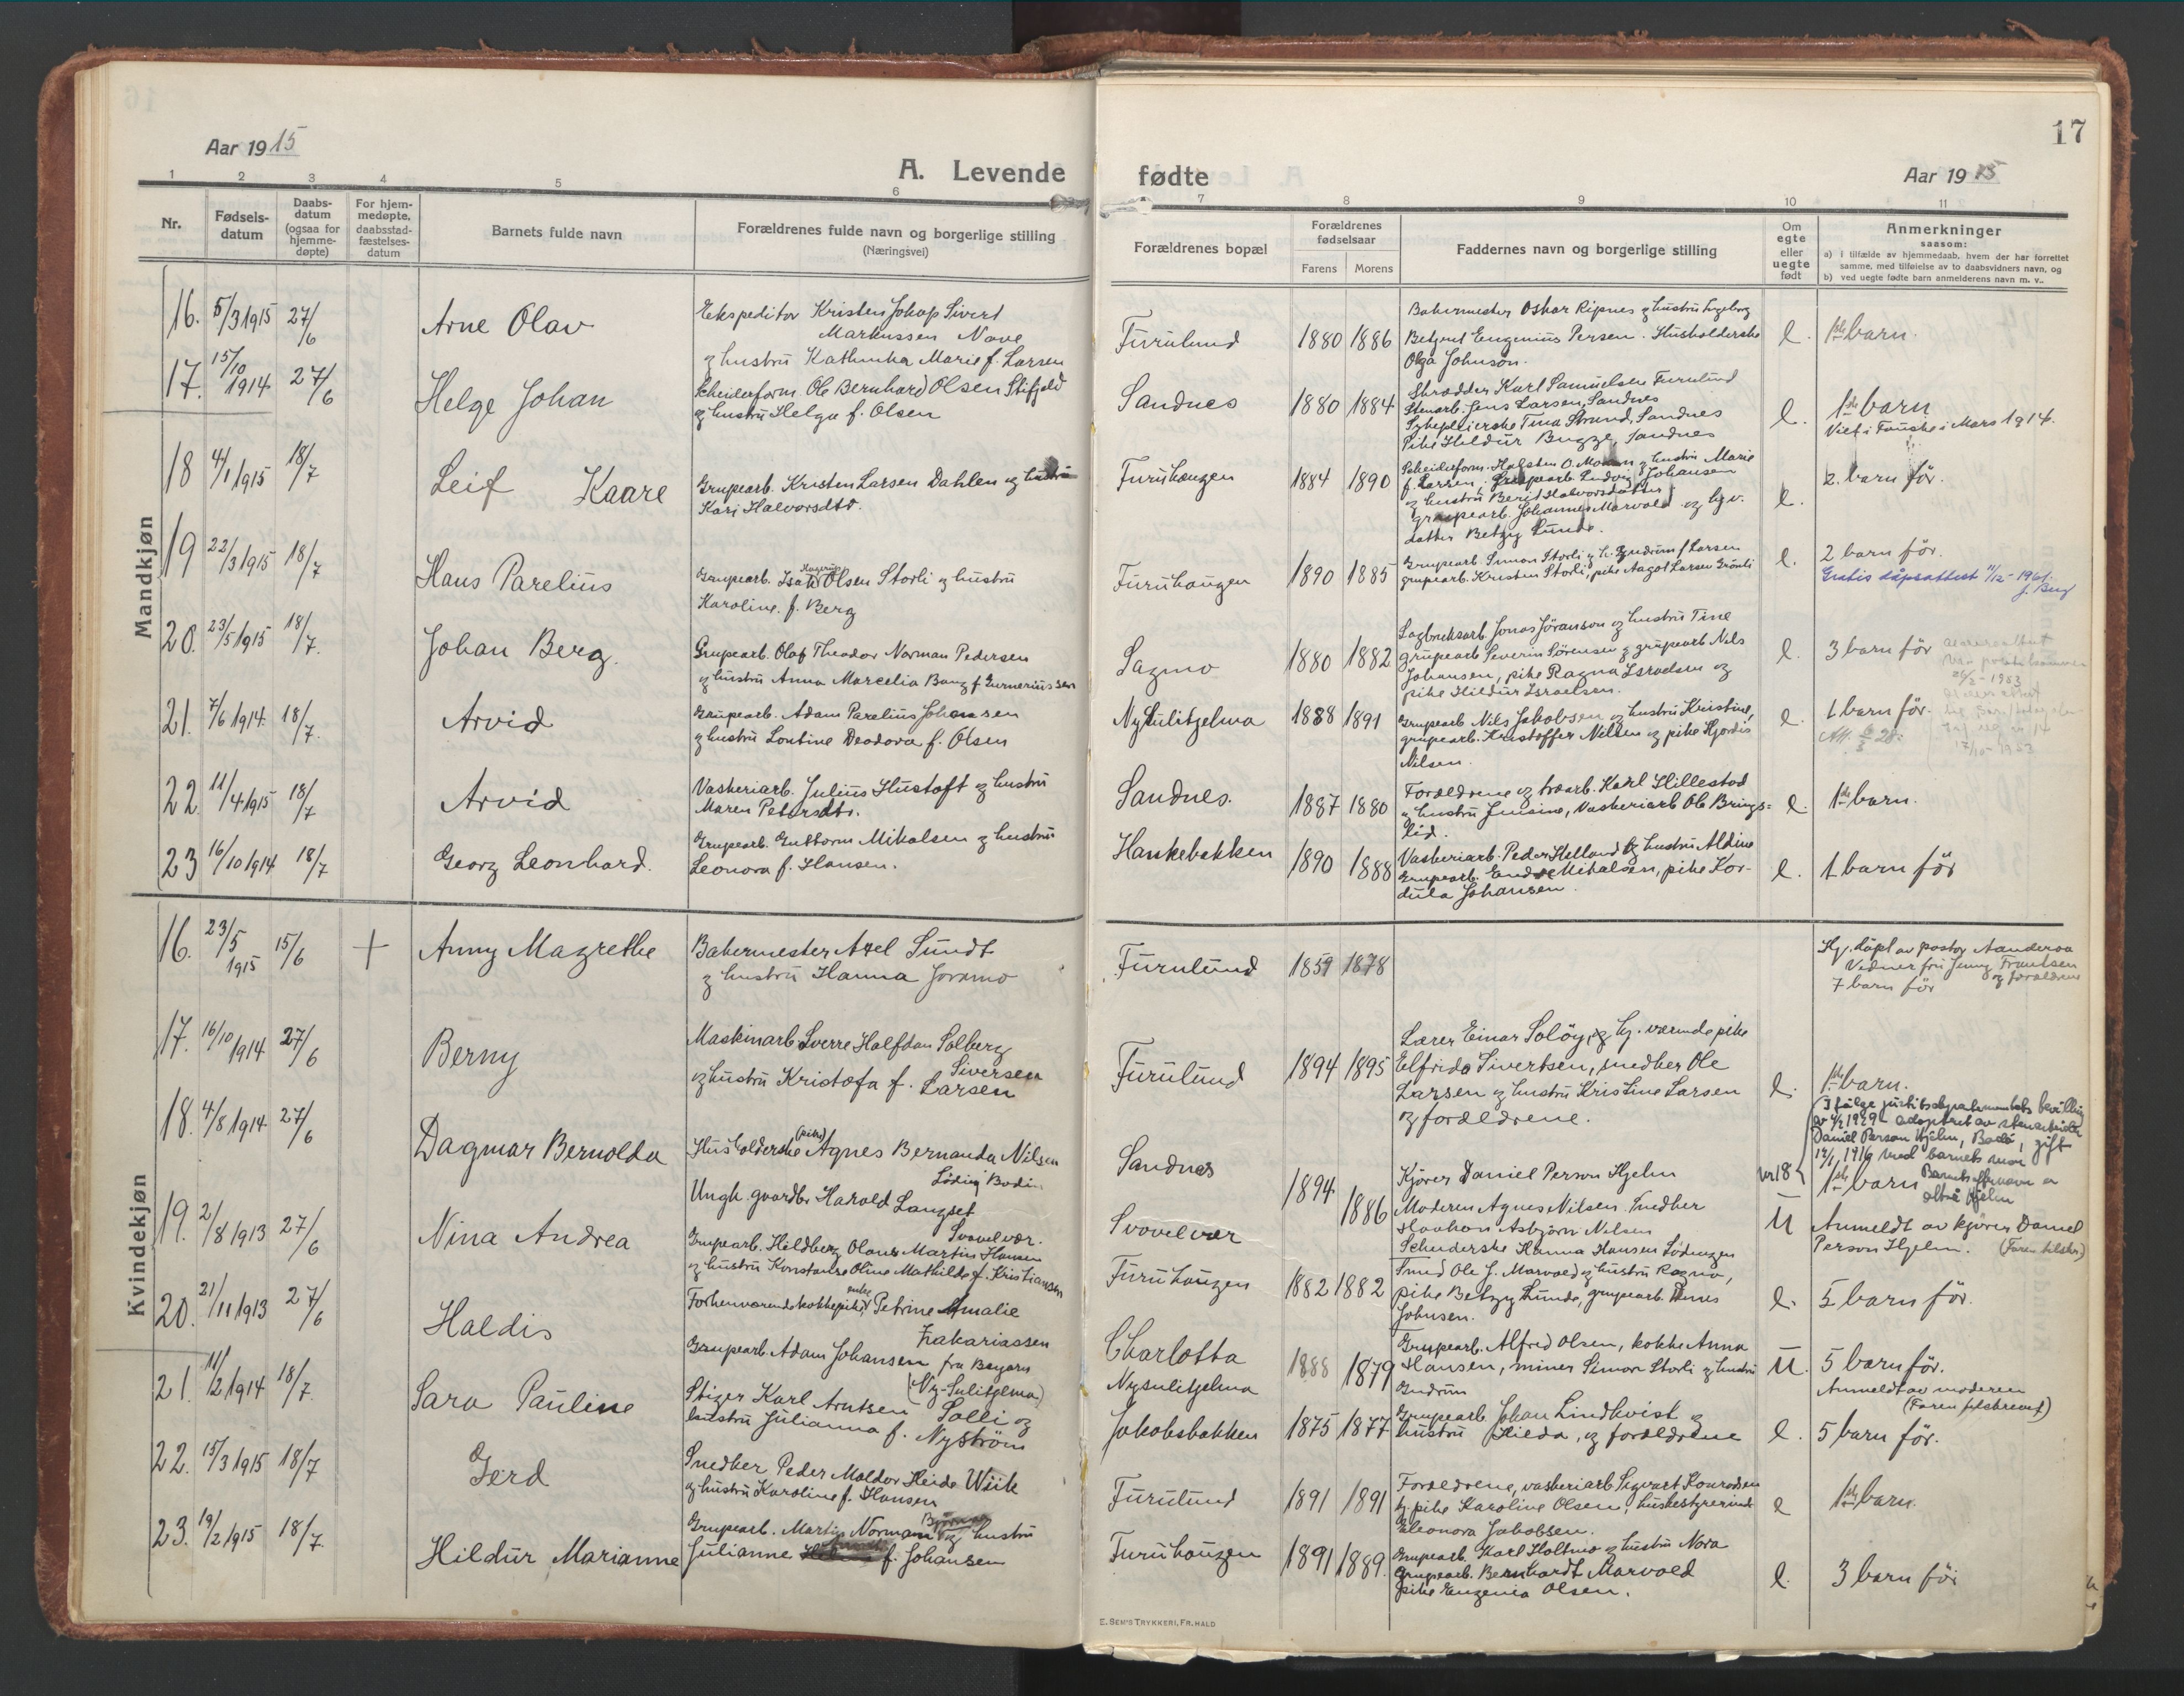 Aar 1915
A. Levende
1 2 3 4 5 6
Nr.
Fødsels-
datum
Daabs-
datum
(ogsaa for
hjemme-
døpte)
For hjem-
medøpte,
daabsstad-
fæstelses-
datum
Barnets fulde navn
Forældrenes fulde navn og borgerlige stilling
(Næringsvei)
Mandkjøn
16. 5/3 1915 27/6 Arne Olav
Ekspeditør Kristen Johap Sivert
Markussen Nave
og hustru Kathinka Marie f. Larsen
17. 15/10 1914 27/6 Helge Johan
Scheiderform. Ole Bernhard Olsen Stifjeld
og hustru Helga f. Olsen
18 4/1 1915 18/7 Leif Kaare
Grupearb. Kristen Larsen Dahlen og hustru
Kari Halvorsdtr.
19 22/3 1915 18/7 Hans Parelius
Grupearb. Isak Olsen Storli og hustru
Karoline f. Berg
20. 23/5 1915 18/7. Johan Berg.
Grupearb. Olaf Theodor Norman Pedersen
og hustru Anna Marcelia Bang f.
21. 7/6 1914. 18/7. Arvid
Grupearb. Adam Parelius Johansen
og hustru Lontine Deodora f. Olsen
22. 11/4 1915 18/7 Arvid
Vaskeriarb. Julius Hustoft og hustru
Maren Petersdtr.
23 16/10 1914 18/7 Georg Leonhard.
Grupearb. Guttorm Mikalsen og hustru
Leonora f. Hansen.
Kvindekjøn
16. 23/5 1915 15/6 + Anny Magrethe
Bakermester Axel Sundt
og hustru Hanna Joramo
17. 16/10 1914 27/6 Berny
Maskinarb. Sverre Halfdan Solberg
Siversen
og hustru Kristofa f. Larsen
18. 4/8 1914 27/6 Dagmar Bernolda
Husholderske (pike) Agnes Bernanda Nilsen
Löding Bodin
Ungk. gaardbr Harald Langset
Svovelvær.
19. 2/8 1913 27/6 Nina Andrea
Grupearb. Hildberg Olaus Martin Hansen
og hustru Konstanse Oline Mathilde f. Kristiansen
20. 21/11 1913 27/6 Haldis
Forhenværende kokkepike, enke Petrine Amalie
Zakariassen
21. 11/2 1914 18/7. Sara Pauline
Grupearb. Adam Johansen fra Beyarn
(Ny-Sulitjelma)
Stiger Karl Arntsen Solli og
hustru Julianna f. Nyström
22. 15/3 1915 18/7 Gerd
Snedker Peder Moldor Heide Wiik
og hustru Karoline f. Hansen
23. 19/2 1915 18/7. Hildur Marianne
Grupearb. Martin Norman og hustru
Julianne f. Johansen
17
fødte
Aar 1915
7 8 9 10 11
Forældrenes bopæl
Forældrenes
fødselsaar
Farens Morens
Faddernes navn og borgerlige stilling
Om
egte
eller
uegte
født
Anmerkninger
saasom:
a) i tilfælde av hjemmedaab, hvem der har forrettet
samme, med tilføielse av to daabsvidners navn, og
b) ved uegte fødte barn anmelderens navn m. v..
Furulund 1880 1886
Bakermester Oskar Ripnes og hustru Ingeborg
Betjent Eugenius Persen. Husholderske
Olga Johnson.
e. 1ste barn.
Sandnes 1880 1884
Skrædder Karl Samuelsen Furulund
Stenarb. Jens Larsen, Sandnes
Sykepleierske Tina Strand, Sandnes
Pike Hildur Bugge, Sandnes
e. 1ste barn
Viet i Fauske i Mars 1914.
Furuhaugen 1884 1890
Scheiderform. Halsten O. Moxan og hustru Marie
f. Larsen. Grupearb. Ludvig Johansen
og hustru Berit Halvorsdatter
grupearb. Johannes Marvold og hj.v.
datter Betzy Lunde.
e. 2. barn før.
Furuhaugen 1890 1885
Grupearb. Simon Storli og h. Gudrun f Larsen
grupearb. Kristen Storli, pike Aagot Larsen Grönli
e. 2 barn før.
Gratis dåpsattest 11/12-1961.
J. Berg
Sagmo 1880 1882
Sagbruksarb. Jonas Jöranson og hustru Tine
grupearb Severin Sørensen og grupearb Nils
Johansen, pike Ragna Israelsen og
pike Hildur Israelsen.
e. 3 barn før
Ny Sulitjelma 1888 1891
Grupearb Nils Jakobsen og hustru Kristine,
grupearb. Kristoffer Nilsen og pike Hjördis
Nilsen.
e. 1 barn før.
Sandnes. 1887 1880
Forældrene og træarb. Karl Hillestad
og hustru Jensine, Vaskeriarb Ole Brings-
lid.
e. 1ste barn.
Hankebakken 1890 1888
Vaskeriarb. Peder Helland og hustru Aldine
Grupearb. Endre Mikalsen, pike Kor-
dula Johansen.
e. 1 barn før
Furulund 1859 1878
Hj. døpt av pastor Aanderaa
Vidner fru Jenny Frantsen
og forældrene
7 barn før
Furulund 1894 1895
Lærer Einar Solöy, og hj. værende pike
Elfrida Sivertsen, snedker Ole
Larsen og hustru Kristine Larsen
og forældrene.
e. 1ste barn.
Sandnes
Svovelvær
1894 1886
Kjører Daniel Person Hjelm
Moderen Agnes Nilsen. Snedker
Haakon Asbjørn Nilsen
Scheiderske Hanna Hansen Lødingen
nr 18
u
I følge justitsdepartementets bevilling
av 4/2 1929 adoptret av stenarbeider
Daniel Person Hjelm, Bodø, gift
14/1 1916 med barnets mor
1ste barn
Barnets efternavn er
altså Hjelm
Anmeldt av kjører Daniel
Person Hjelm. (Faren tilskr.)
Furuhaugen 1882 1882
Smed Ole J. Marvold og hustru Ragna,
pike Betzy Lunde, grupearb. Enes
Johnsen.
e. 5 barn før.
Charlotta 1888 1879
Grupearb. Alfred Olsen, kokke Anna
Hansen, miner Simon Storli og hustru
Gudrun
u. 5 barn før.
Anmeldt av moderen
(Faren tilskrevet)
Nysulitjelma
Jakobsbakken 1875 1877
Grupearb. Johan Lindkvist og
hustru Hilda, og forældrene
e. 5 barn før.
Furulund 1891 1891
Forældrene, vaskeriarb Sigvart Konradsen
og pike Karoline Olsen, husbestyrerinde
Eleonora Jakobsen.
e 1ste barn.
Furuhaugen 1891 1889.
Grupearb. Karl Holtmo og hustru Nora
Grupearb. Bernhardt Marvold
pike Eugenia Olsen.
e. 3 barn før
E. SEM'S TRYKKERI, FR.HALD